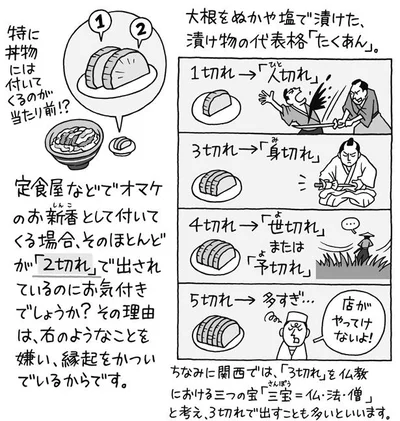 大根をぬかや塩で漬けた、
漬け物の代表格「たくあん」。
特に
丼物
には
付いて
くるのが
当たり前!?
1
2
定食屋などでオマケ
のお新香として付いて
くる場合、そのほとんど
が「2切れ」で出され
ているのにお気付き
でしょうか？その理由
は、右のようなことを
嫌い、縁起をかつい
でいるからです。
1切れ→「人切れ」
3切れ→「身切れ」
4切れ→「世切れ」
または
「予切れ」
…
5切れ→多すぎ…
店が
やってけ
ないよ!
ちなみに関西では、「3切れ」を仏教
における三つの宝「三宝＝仏・法・僧」
と考え、3切れで出すことも多いといいます。